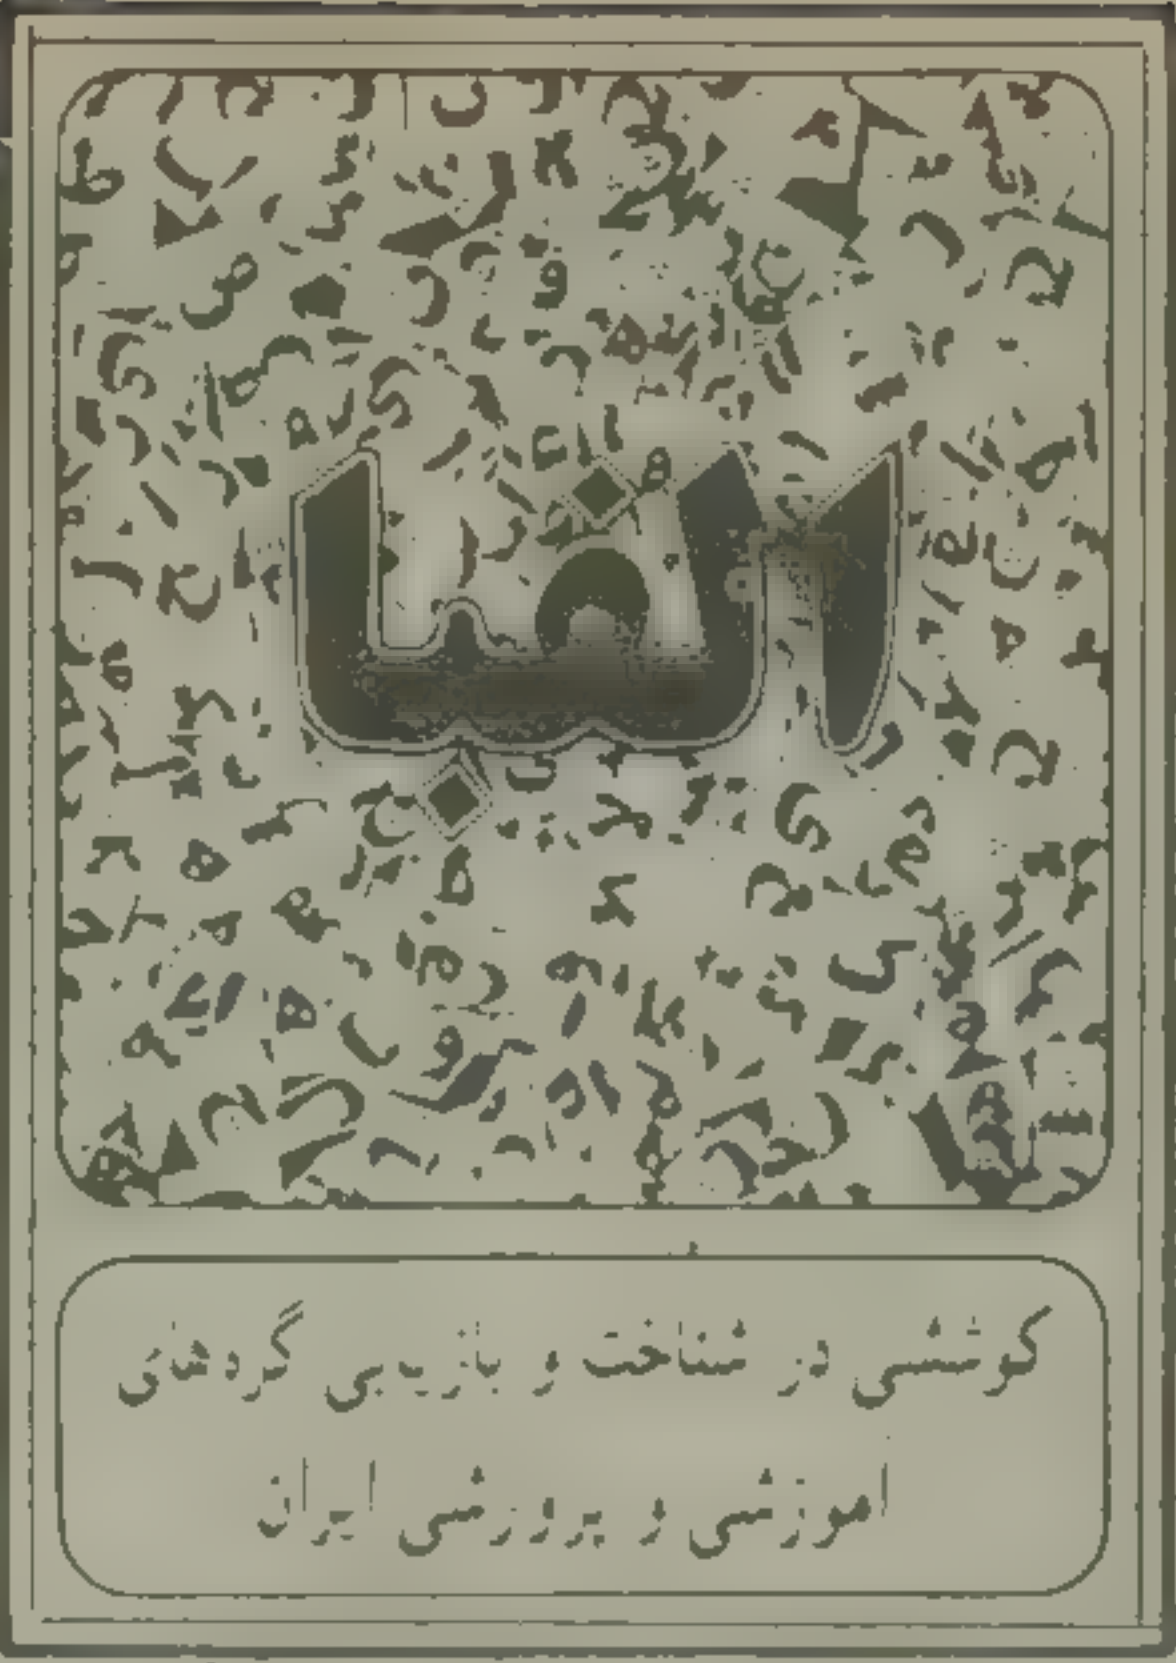 الفبا
کوششی در شناخت و بازیابی گردهمائی
آموزشی و پرورشی ایران